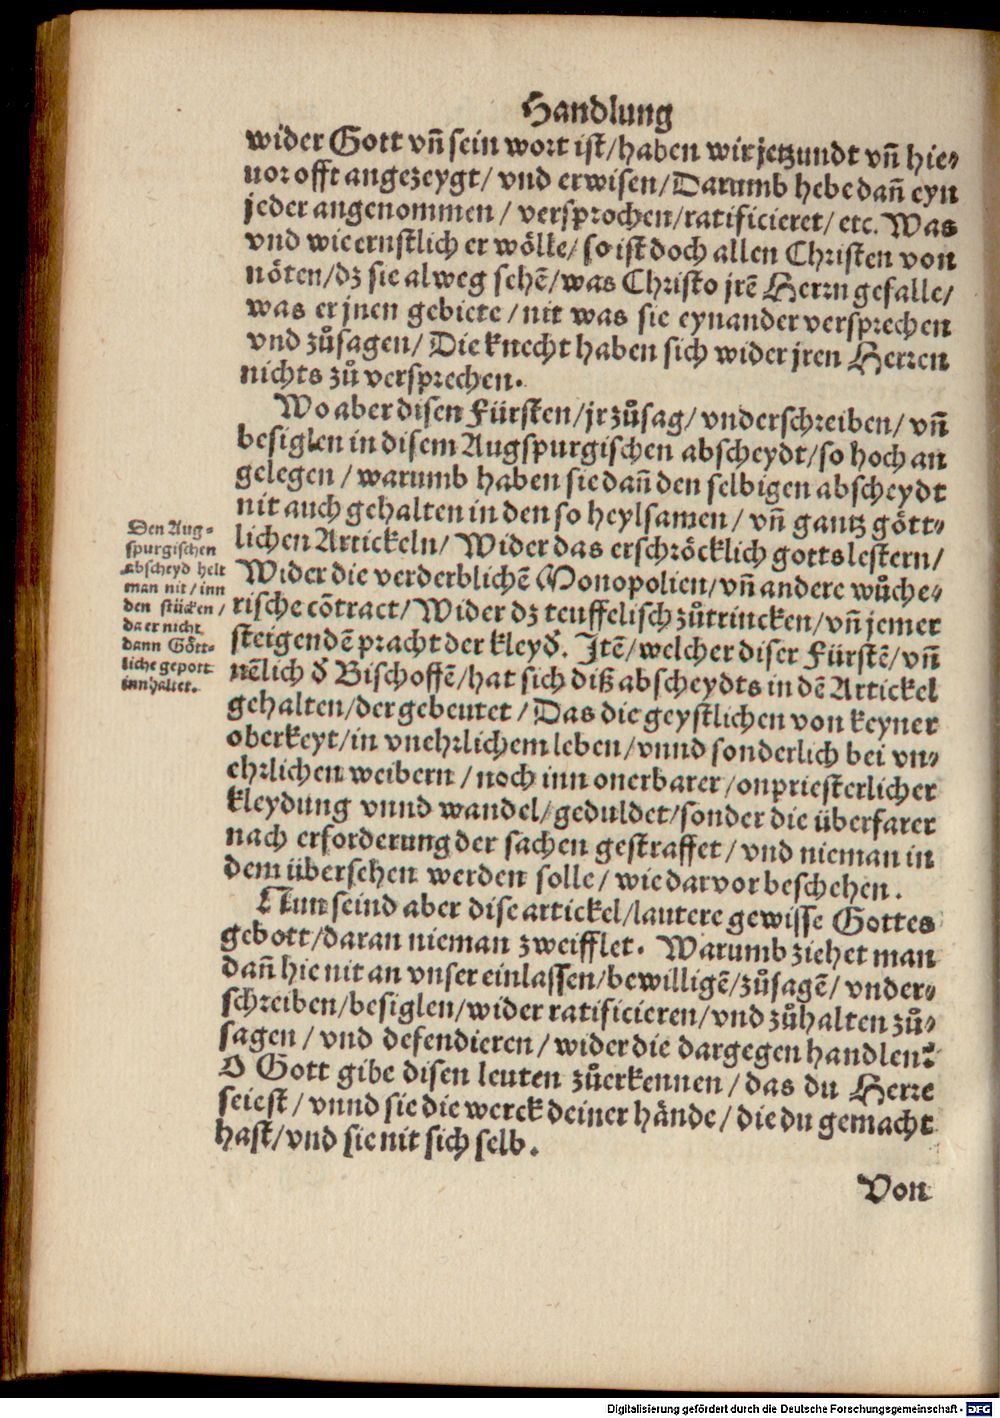 Handlung
wider Gott vñ sein wort ist/haben wir jetzundt vñ hie⸗
uor offt angezeygt/ vnd erwisen/Darumb hebe dañ eyn
jeder angenommen / versprochen/ratificieret/ etc. Was
vnd wie ernstlich er wölle/ so ist doch allen Christen von
nöten/dz sie alweg sehē/was Christo jrē Herrn gefalle/
was er jnen gebiete / nit was sie eynander versprechen
vnd zůsagen/ Die knecht haben sich wider jren Herren
nichts zů versprechen.
Wo aber disen Fürsten/jr zůsag/ vnderschreiben/ vñ
besiglen in disem Augspurgischen abscheydt/so hoch an
gelegen / warumb haben sie dañ den selbigen abscheydt
nit auch gehalten in den so heylsamen/ vñ gantz gött⸗
lichen Artickeln/ Wider das erschröcklich gottslestern/
Wider die verderblichē Monopolien/vñ andere wůche⸗
rische cōtract/Wider dz teuffelisch zůtrincken/vñ jemer
steigendē pracht der kleyd̄. Itē/welcher diser Fürstē/vñ
nēlich d̄ Bischoffē/hat sich diß abscheydts in dē Artickel
gehalten/der gebeutet / Das die geystlichen von keyner
oberkeyt/in vnehrlichem leben/vnnd sonderlich bei vn⸗
ehrlichen weibern / noch inn onerbarer/onpriesterlicher
kleydung vnnd wandel/geduldet/sonder die überfarer
nach erforderung der sachen gestraffet/ vnd nieman in
dem übersehen werden solle/ wie darvor beschehen.
Nun seind aber dise artickel/lautere gewisse Gottes
gebott/daran nieman zweifflet. Warumb ziehet man
dañ hie nit an vnser einlassen/bewilligē/zůsagē/ vnder⸗
schreiben/besiglen/wider ratificieren/vnd zůhalten zů⸗
sagen / vnd defendieren/ wider die dargegen handlen?
O Gott gibe disen leuten zůerkennen / das du Herre
seiest / vnnd sie die werck deiner hände/ die du gemacht
hast/vnd sie nit sich selb.
Von
Den Aug⸗
spurgischen
abscheyd helt
man nit/inn
den stücken/
da er nicht
dann Gött⸗
liche gepott
innhaltet.
Digitalisierung gefördert durch die Deutsche Forschungsgemeinschaft - DFG